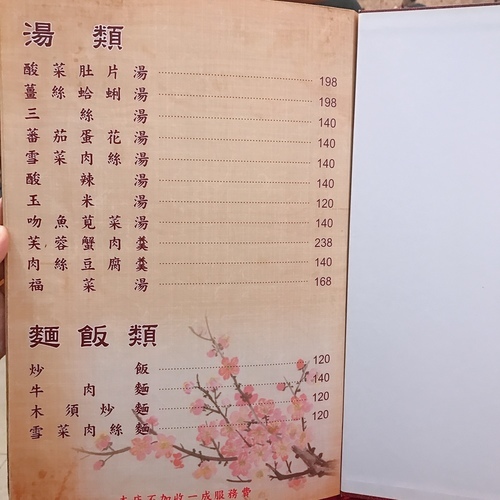 湯 類
酸菜肚片湯 198
薑絲蛤蜊湯 198
三絲湯 140
蕃茄蛋花湯 140
雪菜肉絲湯 140
酸辣湯 140
玉米湯 120
吻魚莧菜湯 140
芙蓉蟹肉羹 238
肉絲豆腐羹 140
福菜湯 168
麵飯類
炒飯 120
牛肉麵 140
木須炒麵 120
雪菜肉絲麵 120
本店不加收一成服務費